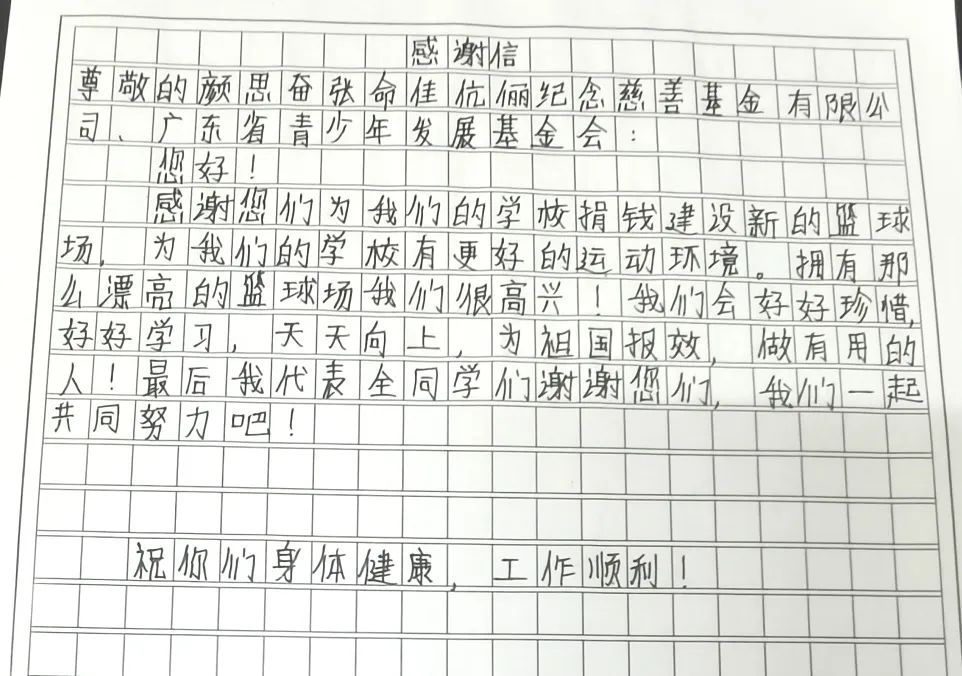 感谢信
尊敬的颜思奋张命佳伉俪纪念慈善基金有限公
司、广东省青少年发展基金会：
您好！
感谢您们为我们的学校捐钱建设新的篮球
场，为我们的学校有更好的运动环境。拥有那
么漂亮的篮球场我们很高兴！我们会好好珍惜，
好好学习，天天向上，为祖国报效，做有用的
人！最后我代表全同学们谢谢您们，我们一起
共同努力吧！
祝你们身体健康，工作顺利！